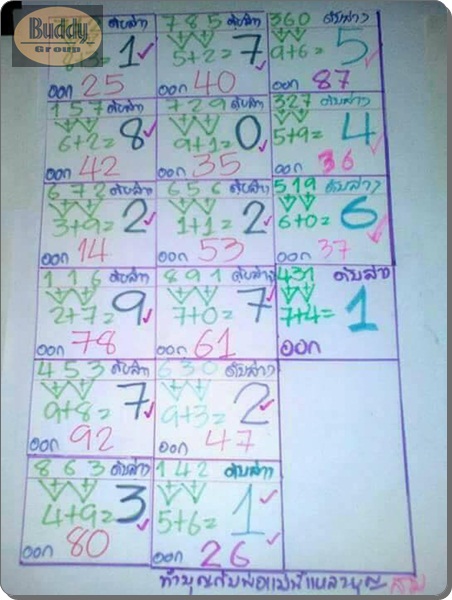 Buddy
Group
ดับล่าง
8+3= 1
ออก 25
785 ดับล่าง
5+2= 7
ออก 40
360 ดับล่าง
9+6= 5
ออก 87
157 ดับล่าง
6+2= 8
ออก 42
729 ดับล่าง
9+1= 0
ออก 35
327 ดับล่าง
5+9= 4
ออก 36
672 ดับล่าง
3+9= 2
ออก 14
656 ดับล่าง
1+1= 2
ออก 53
519 ดับล่าง
6+0= 6
ออก 37
116 ดับล่าง
2+7= 9
ออก 78
891 ดับล่าง
7+0= 7
ออก 61
431 ดับล่าง
7+4= 1
ออก
453 ดับล่าง
9+8= 7
ออก 92
630 ดับล่าง
9+3= 2
ออก 47
863 ดับล่าง
4+9= 3
ออก 80
142 ดับล่าง
5+6= 1
ออก 26
ทำบุญกับพ่อแม่